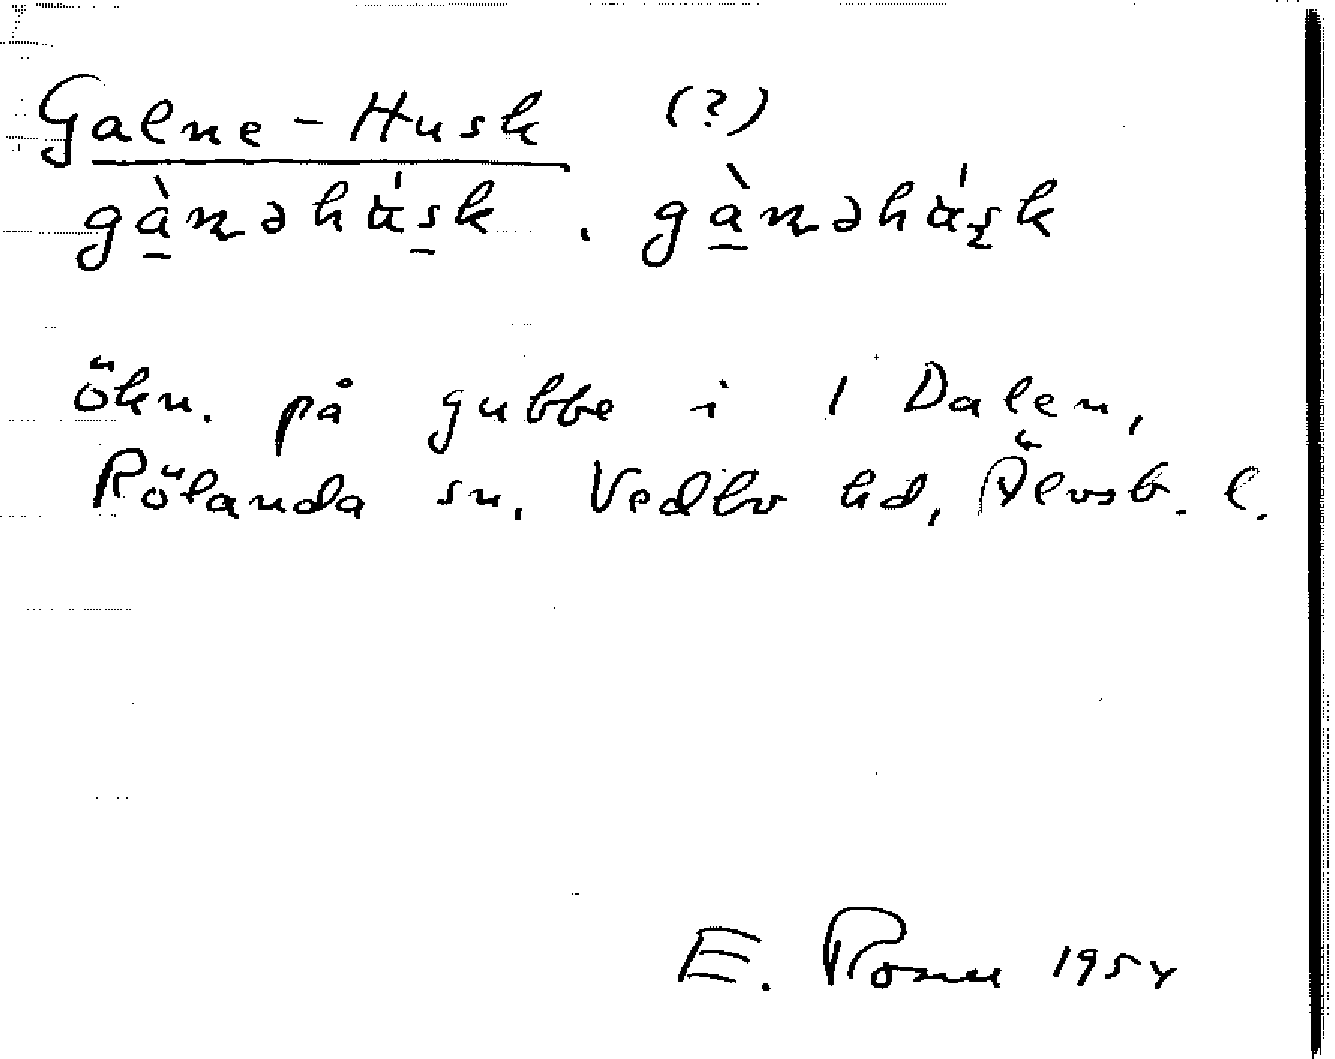 Galne-Husk (?)
gànəhúsk. gànəhúsk
ökn. på gubbe i 1 Dalen,
Rölanda sn. Vedbo hd, Älvsb. l.
E. Rosu 1954